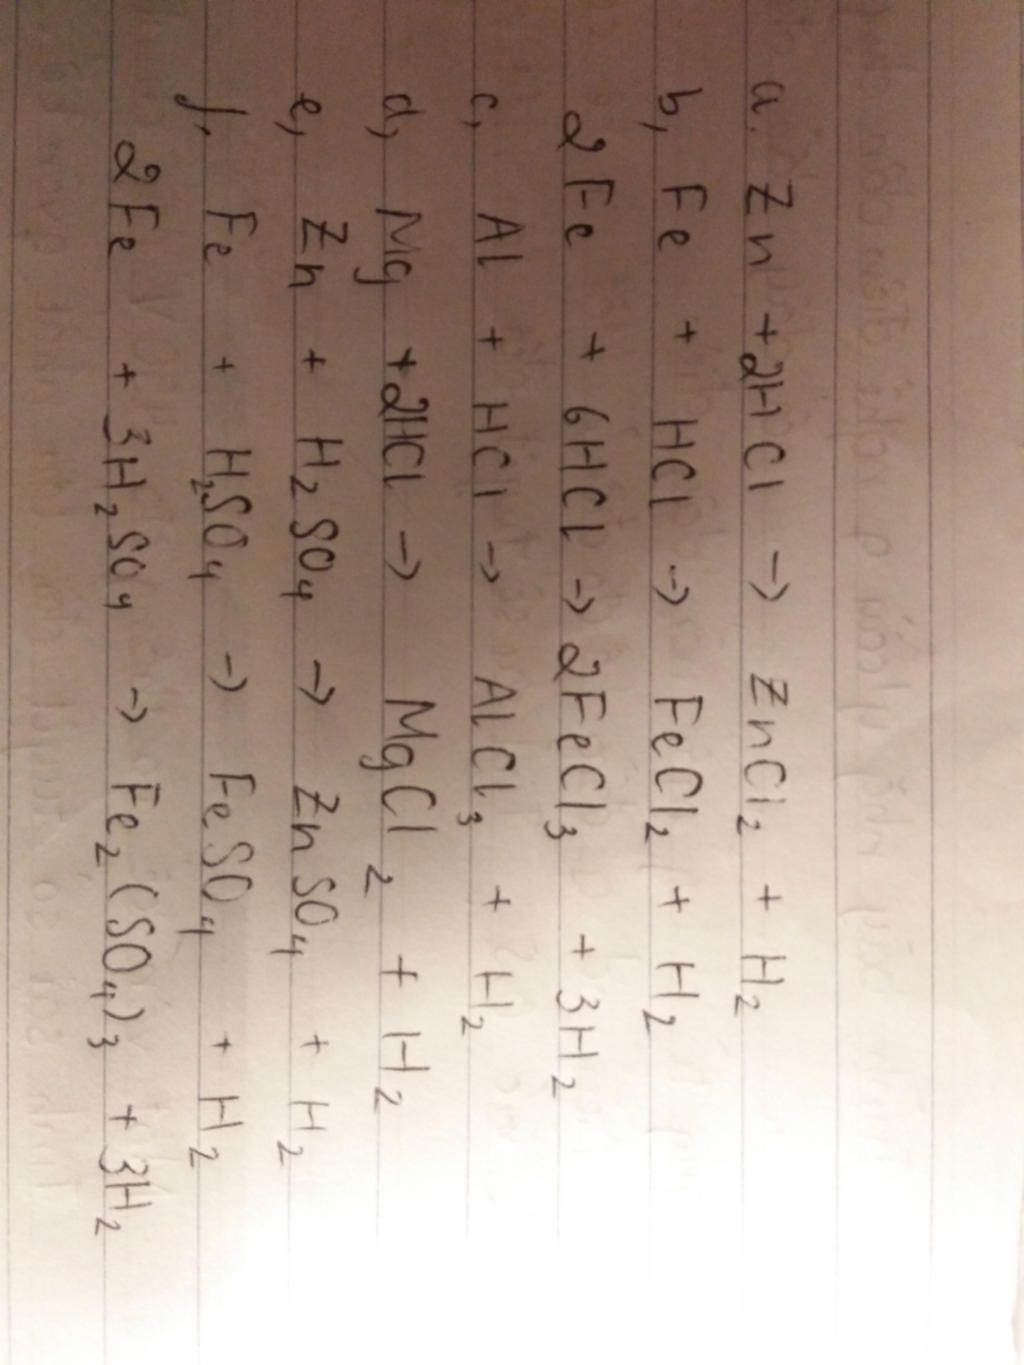 a. Zn + 2HCl → ZnCl₂ + H₂
b, Fe + HCl → FeCl₂ + H₂
2Fe + 6HCl → 2FeCl₃ + 3H₂
c, Al + HCl → AlCl₃ + H₂
d, Mg + 2HCl → MgCl₂ + H₂
e, Zn + H₂SO₄ → ZnSO₄ + H₂
f, Fe + H₂SO₄ → FeSO₄ + H₂
2Fe + 3H₂SO₄ → Fe₂(SO₄)₃ + 3H₂